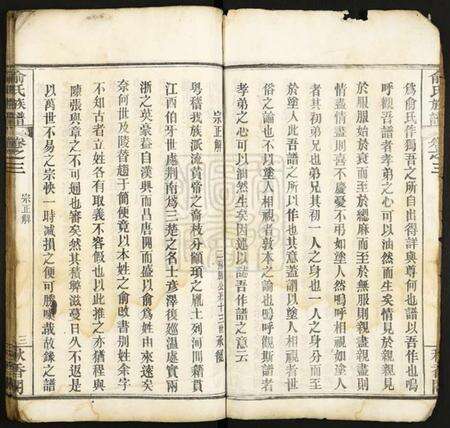 俞氏族譜
卷之三
爲俞氏作獨吾之所自出得詳與尊何也譜以吾作也嗚
呼觀吾譜者孝弟之心可以油然而生矣情見於親親見
於服服始於衰而至於緦麻而至於無服則親盡親盡則
情盡情盡則喜不慶憂不弔如塗人然嗚呼相視如塗人
者其初兄弟也兄弟其初一人之身也一人之身分而至
於塗人此吾譜之所以作也其意蓋謂以塗人相視者世
俗之情也不以塗人相視者敦本之論也嗚呼觀斯譜者
孝弟之心可以油然生矣因題以誌吾作譜之意云
宗正解
粵稽我族派流黃帝之裔枝分顓頊之胤土列河間籍貫
江西伯牙世處荊南爲三楚之名士彥澤後遷溫處實兩
浙之英豪蓋自漢興而昌唐開而盛以俞爲姓由來遠矣
奈何世及陵替趨于簡便竟以本姓之俞改書別姓余字
不知古者立姓各有取義不容假也以此推之亦猶程與
陳張與章之不可不審矣然其積弊滋蔓日久不返是
以萬世不易之宗快一時減損之便可勝嘆哉故錄之譜
宗正解
三
秋香閣